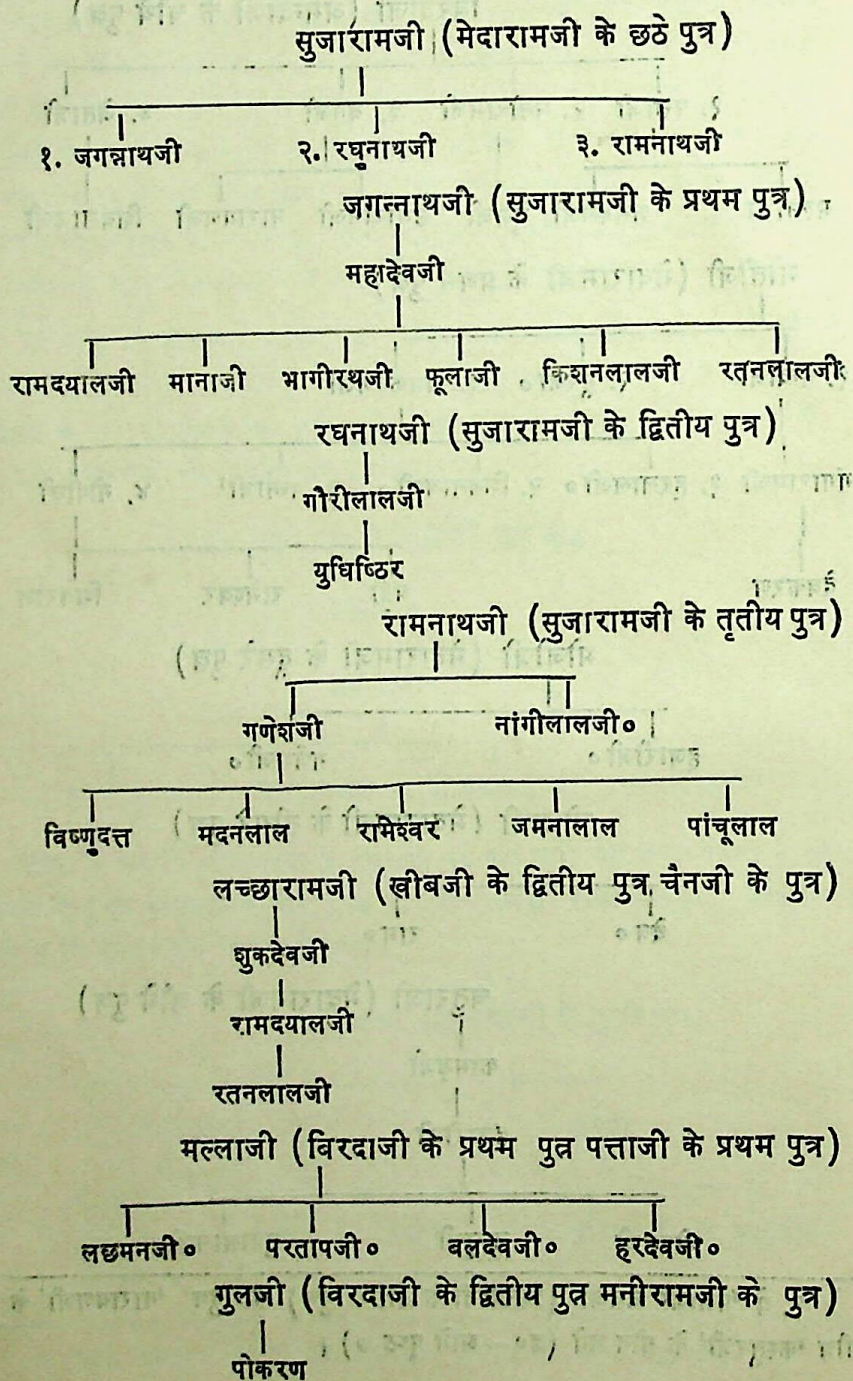 सुजारामजी (मेदारामजी के छठे पुत्र)
१. जगन्नाथजी २. रघुनाथजी ३. रामनाथजी
जगन्नाथजी (सुजारामजी के प्रथम पुत्र)
महादेवजी
रामदयालजी मानाजी भागीरथजी फूलाजी किशनलालजी रतनलालजी
रघनाथजी (सुजारामजी के द्वितीय पुत्र)
गौरीलालजी
युधिष्ठिर
रामनाथजी (सुजारामजी के तृतीय पुत्र)
गणेशजी नांगीलालजी०
विष्णुदत्त मदनलाल रामेश्वर जमनालाल पांचूलाल
लच्छारामजी (खीबजी के द्वितीय पुत्र चैनजी के पुत्र)
शुकदेवजी
रामदयालजी
रतनलालजी
मल्लाजी (विरदाजी के प्रथम पुत्र पत्ताजी के प्रथम पुत्र)
लछमनजी० परतापजी० बलदेवजी० हरदेवजी०
गुलजी (विरदाजी के द्वितीय पुत्र मनीरामजी के पुत्र)
पोकरण